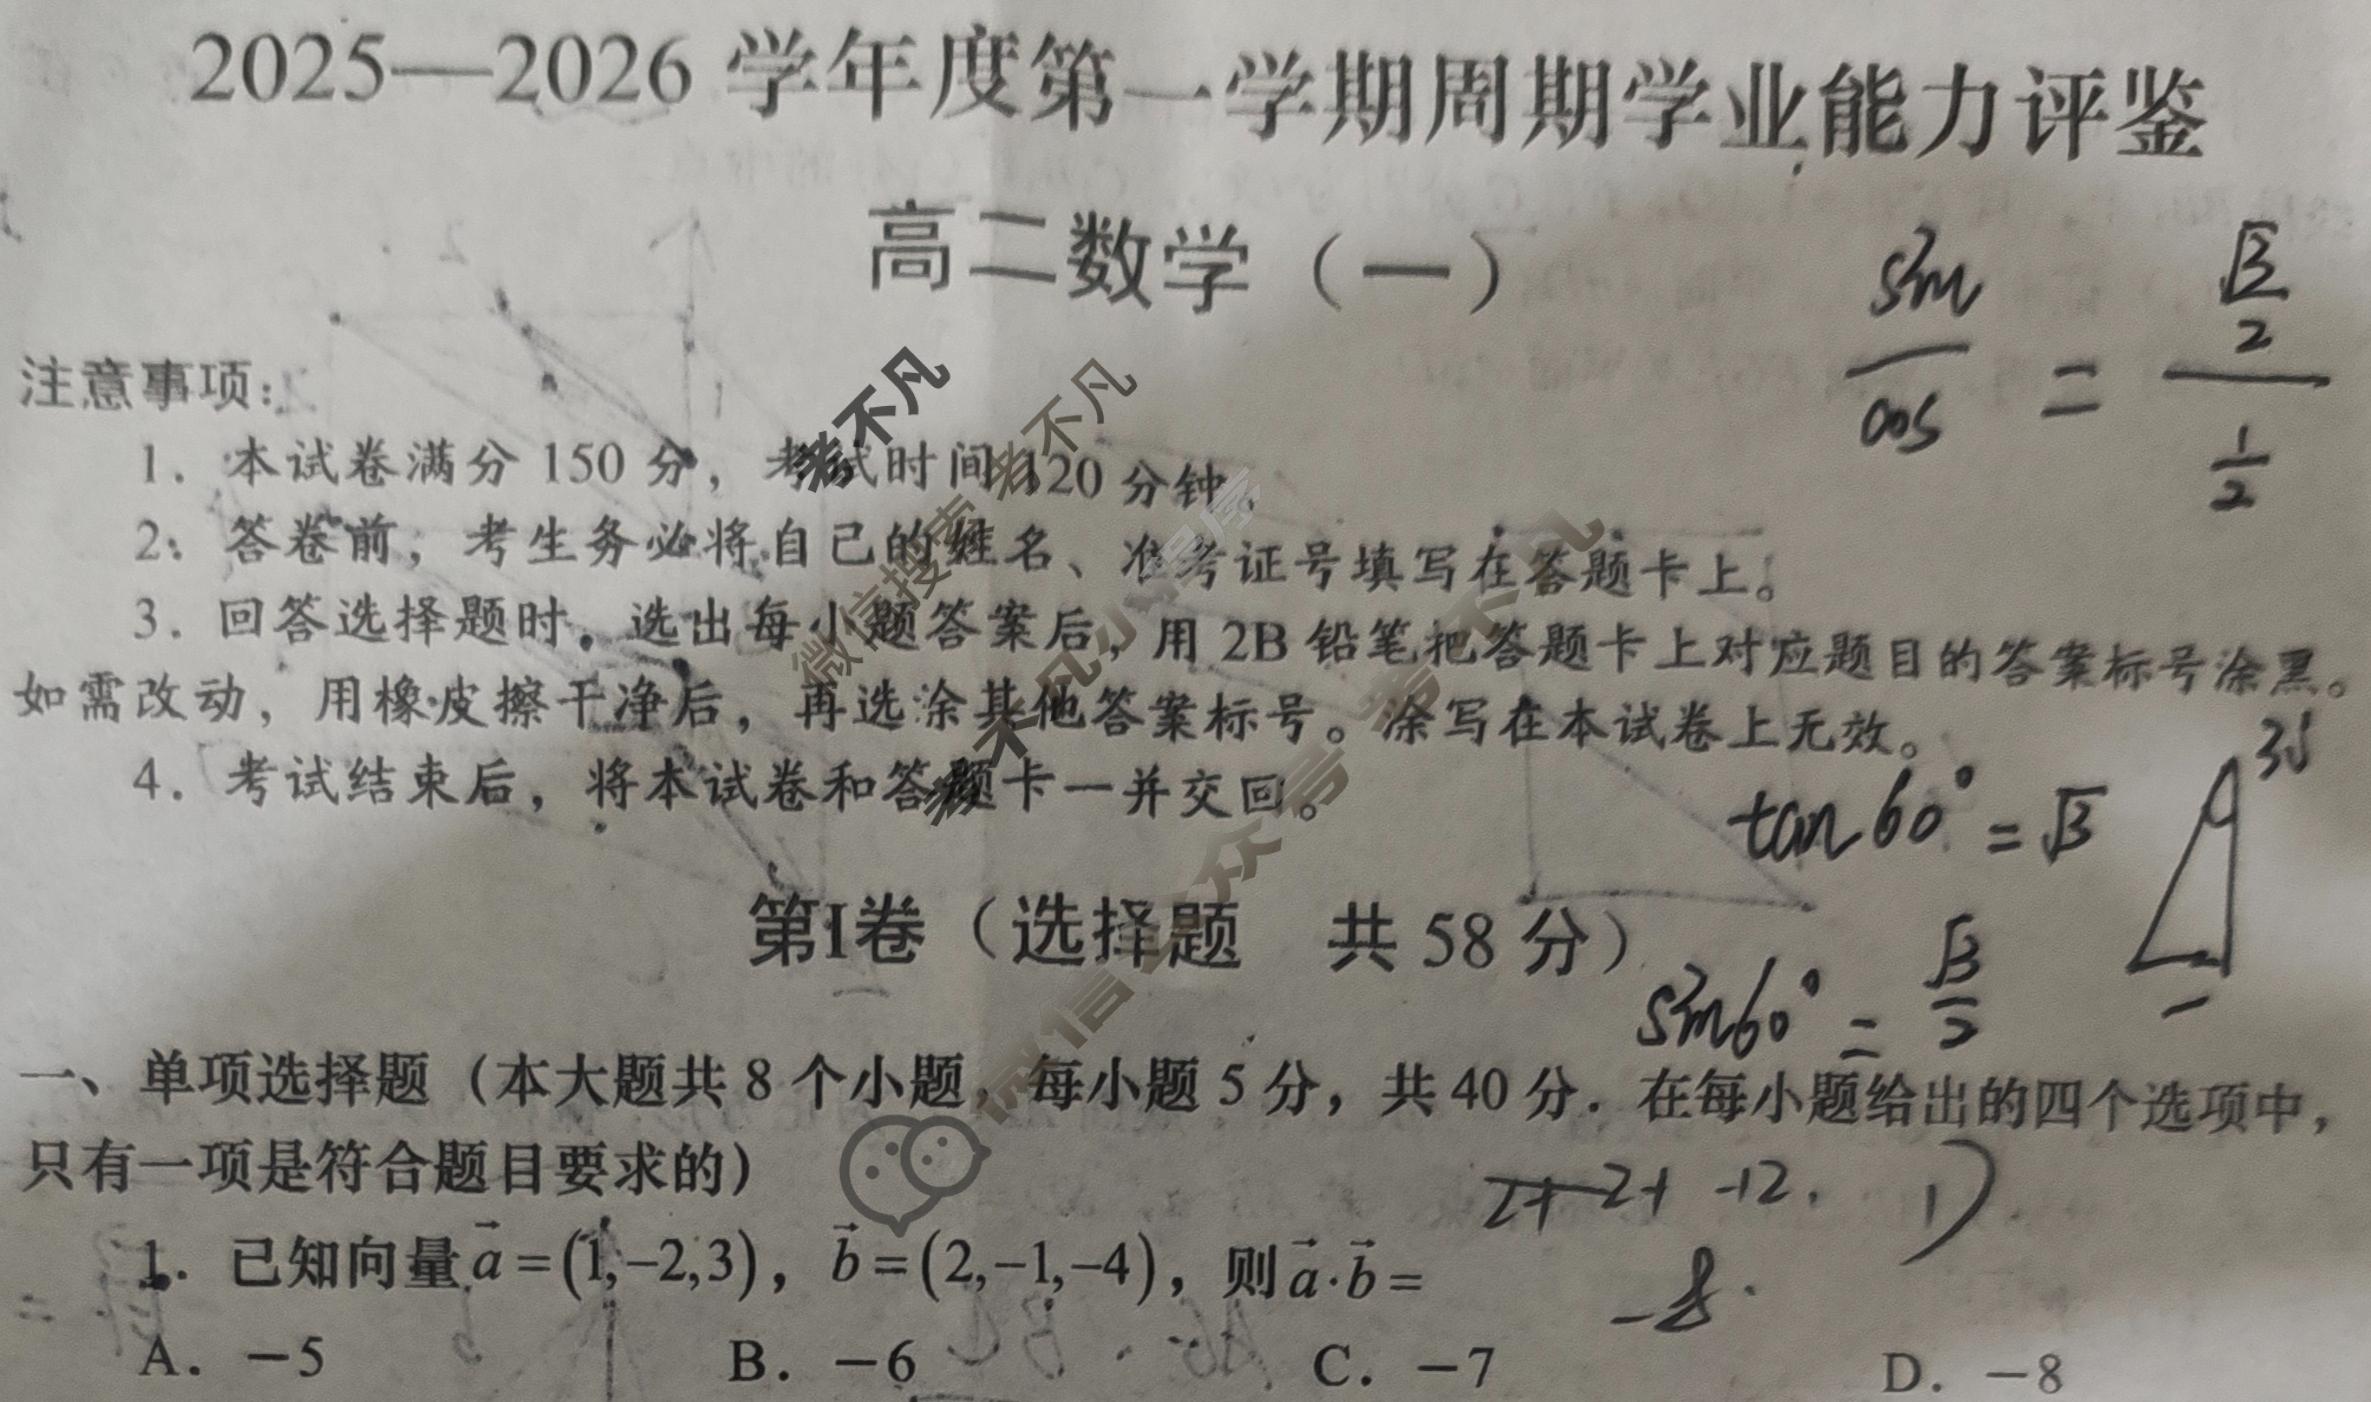 2025—2026 学年度第一学期周期学业能力评鉴
高二数学（一）
sin/cos = (√3/2)/(1/2)
注意事项：
1．本试卷满分 150 分，考试时间 120 分钟。
2．答卷前，考生务必将自己的姓名、准考证号填写在答题卡上。
3．回答选择题时，选出每小题答案后，用 2B 铅笔把答题卡上对应题目的答案标号涂黑。
如需改动，用橡皮擦干净后，再选涂其他答案标号。涂写在本试卷上无效。
4．考试结束后，将本试卷和答题卡一并交回。
tan60°=√3
第I卷（选择题 共 58 分）
sin60°=√3/2
一、单项选择题（本大题共 8 个小题，每小题 5 分，共 40 分．在每小题给出的四个选项中，
只有一项是符合题目要求的）
2+ -12.
1．已知向量 a⃗=(1,−2,3)，b⃗=(2,−1,−4)，则 a⃗·b⃗=
-8.
A．−5 B．−6 C．−7 D．−8
考不凡
微信搜索 考不凡
考不凡小程序
微信公众号 考不凡